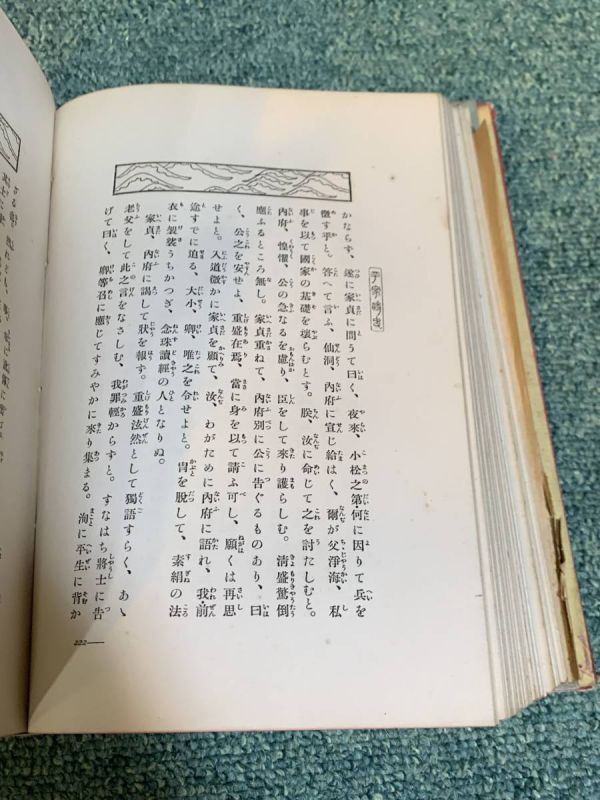 かならす、遂に家貞に問うて曰く、夜來、小松之第何に因りて兵を
徴す乎と。答へて言ふ、仙洞、內府に宣じ給はく、爾が父淨海、私
事を以て國家の基礎を壞らむとす。朕、汝に命じて之を討たしむと。
內府、惶懼、公の急なるを慮り、臣をして來り護らしむ。淸盛驚倒
應ふるところ無し。家貞重ねて、內府別に公に告ぐるものあり、曰
く、公之を安せよ、重盛在焉、當に身を以て請ふ可し、願くは再思
せよと。入道微かに家貞を顧て、汝、わがために內府に語れ、我前
途すでに迫る、大小、卿、唯之を令せよと。冑を脫して、素絹の法
衣に袈裟うちかつぎ、念珠讀經の人となりぬ。
家貞、內府に謁して狀を報ず。重盛泫然として獨語すらく、あゝ
老父をして此之言をなさしむ、我罪輕からずと。すなはち將士に吿
げて曰く、卿等召に應じてすみやかに來り集まる。洵に平生に背か
222